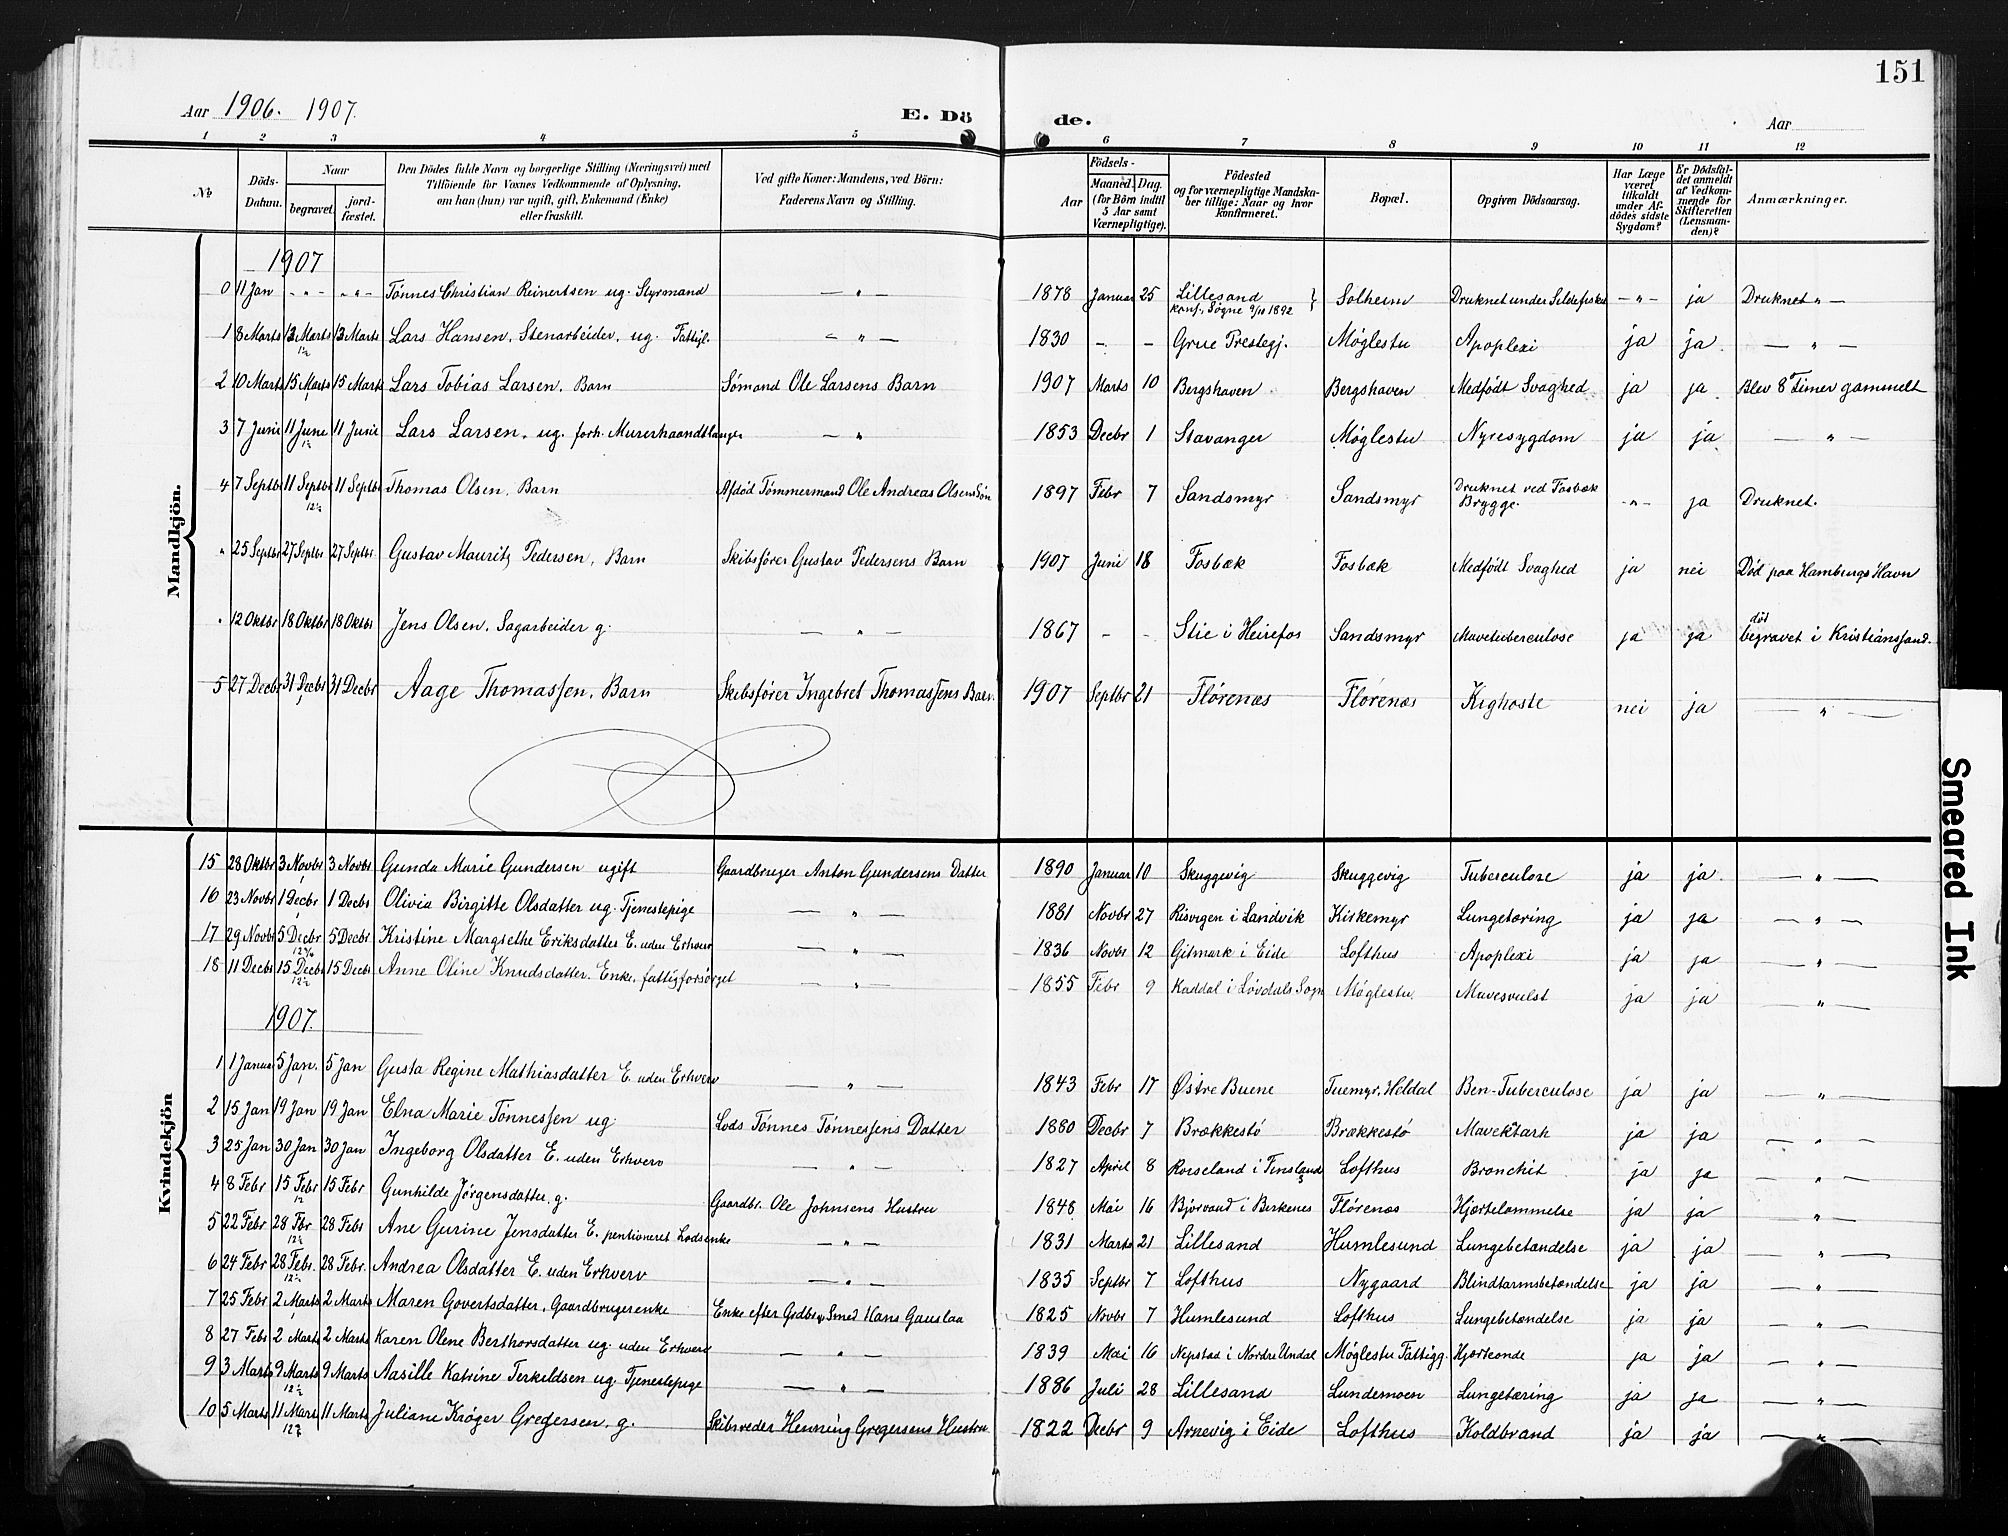 151
Aar 1906. 1907. E. Dö de. Aar
1 2 3 4 5 6 7 8 9 10 11 12
№ Döds-Datum. Naar begravet. jordfæstet. Den Dödes fulde Navn og borgerlige Stilling (Næringsvei) med Tilföiende for Voxnes Vedkommende af Oplysning, om han (hun) var ugift, gift, Enkemand (Enke) eller fraskilt. Ved gifte Koner: Mandens, ved Börn: Faderens Navn og Stilling. Födsels- Aar Maaned. Dag. (for Börn indtil 5 Aar samt Værnepligtige). Födested og for værnepligtige Mandskaber tillige: Naar og hvor konfirmeret. Bopæl. Opgiven Dödsaarsag. Har Læge været tilkaldt under Afdödes sidste Sygdom? Er Dödsfaldet anmeldt af Vedkommende for Skifteretten (Lensmanden)? Anmærkninger.
Mandkjön.
1907
0 11 Jan -"- -"- Tønnes Christian Reinertsen ug. Styrmand — " — 1878 Januar 25 Lillesand konf. Søgne 9/10 1892 } Solheim Druknet under Sildefiske -"- ja Druknet "-
1 8 Marts 13 Marts 13 Marts Lars Hansen, Stenarbeider, ug. Fattigl. — " — 1830 - - Grue Prestegj. Møglestu Apoplexi ja ja. — " —
2 10 Marts 15 Marts 15 Marts Lars Tobias Larsen, Barn Sømand Ole Larsens Barn 1907 Marts 10 Bergshaven Bergshaven Medfødt Svaghed ja ja Blev 8 Timer gammelt
3 7 Juni 11 June 11 Juni Lars Larsen, ug. forh. Murerhaandtlanger — " 1853 Decbr 1 Stavanger Møglestu Nyresygdom ja ja — " —
4 7 Septbr 11 Septbr 11 Septbr Thomas Olsen, Barn Afdød Tømmermand Ole Andreas Olsens Søn 1897 Febr 7 Sandsmyr Sandsmyr Druknet ved Fosbæk Brygge. -"- ja Druknet.
" 25 Septbr 27 Septbr 27 Septbr. Gustav Mauritz Pedersen, Barn Skibsfører Gustav Pedersens Barn 1907 Juni 18 Fosbæk Fosbæk Medfødt Svaghed ja nei Død paa Hamburgs Havn
" 12 Oktbr 18 Oktbr 18 Oktbr Jens Olsen, Sagarbeider g. — " — 1867 - - Stie i Heirefos Sandsmyr Mavetuberculose ja ja død begravet i Kristianssand.
5 27 Decbr 31 Decbr 31 Decbr Aage Thomassen, Barn Skibsfører Ingebret Thomassens Barn. 1907 Septbr 21 Flørenæs Flørenæs Kighoste nei ja — " —
Kvindekjön
15 28 Oktbr 3 Novbr 3 Novbr Gunda Marie Gundersen ugift Gaardbruger Anton Gundersens Datter 1890 Januar 10 Skuggevig Skuggevig Tuberculose ja ja. — " —
16 23 Novbr 1 Decbr 1 Decbr Olivia Birgitte Olsdatter ug. Tjenestepige — " — 1881 Novbr 27 Risvigen i Landvik Kirkemyr Lungetæring ja ja — " —
17 29 Novbr 5 Decbr 5 Decbr Kristine Margrethe Eriksdatter E. uden Erhverv — " — 1836 Novbr 12 Gitmark i Eide Lofthus Apoplexi ja ja — " —
18 11 Decbr 15 Decbr 15 Decbr Anne Oline Knudsdatter. Enke, fattigforsørget — " — 1855 Febr 9 Kaddal i Løvdals Sogn Møglestu Mavesvulst ja ja — " —
1907.
1 1 Januar 5 Jan. 5 Jan Gusta Regine Mathiasdatter E. uden Erhverv — " — 1843 Febr 17 Østre Buene Tuemyr, Heldal Ben-Tuberculose ja ja — " —
2 15 Jan 19 Jan 19 Jan Elna Marie Tønnessen ug Lods Tønnes Tønnessens Datter 1880 Decbr 7 Brækkestø Brækkestø Mavektarh ja ja — " —
3 25 Jan 30 Jan 30 Jan Ingeborg Olsdatter E. uden Erhverv — " — 1827 April 8 Rorseland i Finsland Lofthus Bronchit ja ja — " —
4 8 Febr 15 Febr 15 Febr Gunhilde Jørgensdatter. g. Gaardbr. Ole Johnsens Hustru 1848 Mai 16 Bjorvand i Birkenes Flørenæs Hjertelammelse ja ja — " —
5 22 Febr 28 Fbr 28 Febr Ane Gurine Jensdatter E. pentioneret Lodsenke — " — 1831 Marts 21 Lillesand Humlesund Lungebetændelse ja ja — " —
6 24 Febr 28 Febr. 28 Febr. Andrea Olsdatter E. uden Erhverv — " — 1835 Septbr 7 Lofthus Nygaard Blindtarmsbetændelse ja ja — " —
7 25 Febr 2 Marts 2 Marts Maren Govertsdatter, Gaardbrugerenke Enke efter Grdbr. Smed Hans Gauslaa 1825 Novbr 7 Humlesund Lofthus Lungebetændelse ja ja — " —
8 27 Febr 2 Marts 2 Marts Karen Olene Berthorsdatter ug. uden Erhverv — " — 1839 Mai 16 Nepstad i Nordre Undal Møglestu Fattigg. Hjerteonde ja ja — " —
9 3 Marts 9 Marts 9 Marts Aasille Katrine Terkeldsen ug. Tjenestepige — " — 1886 Juli 28 Lillesand Lundemoen Lungetæring ja ja — " —
10 5 Marts 11 Mart 11 Marts Juliane Krøger Gregersen, g. Skibsreder Henning Gregersens Hustru 1822 Decbr 9 Arnevig i Eide Lofthus Koldbrand ja ja — " —
Smeared Ink